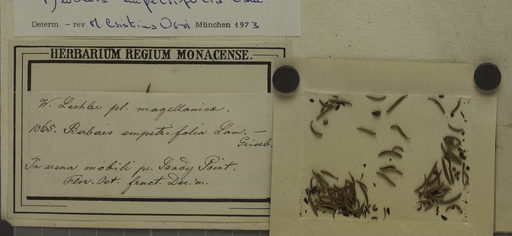 Berberis empetrifolia Lam.
Determ – rev München 1973
HERBARIUM REGIUM MONACENSE.
W. Lechler pl. magellanicae.
1065. Berberis empetrifolia Lam. –
Griseb.
In arena mobili pr. Sandy Point.
Flor. Oct. fruct. Dec. m.